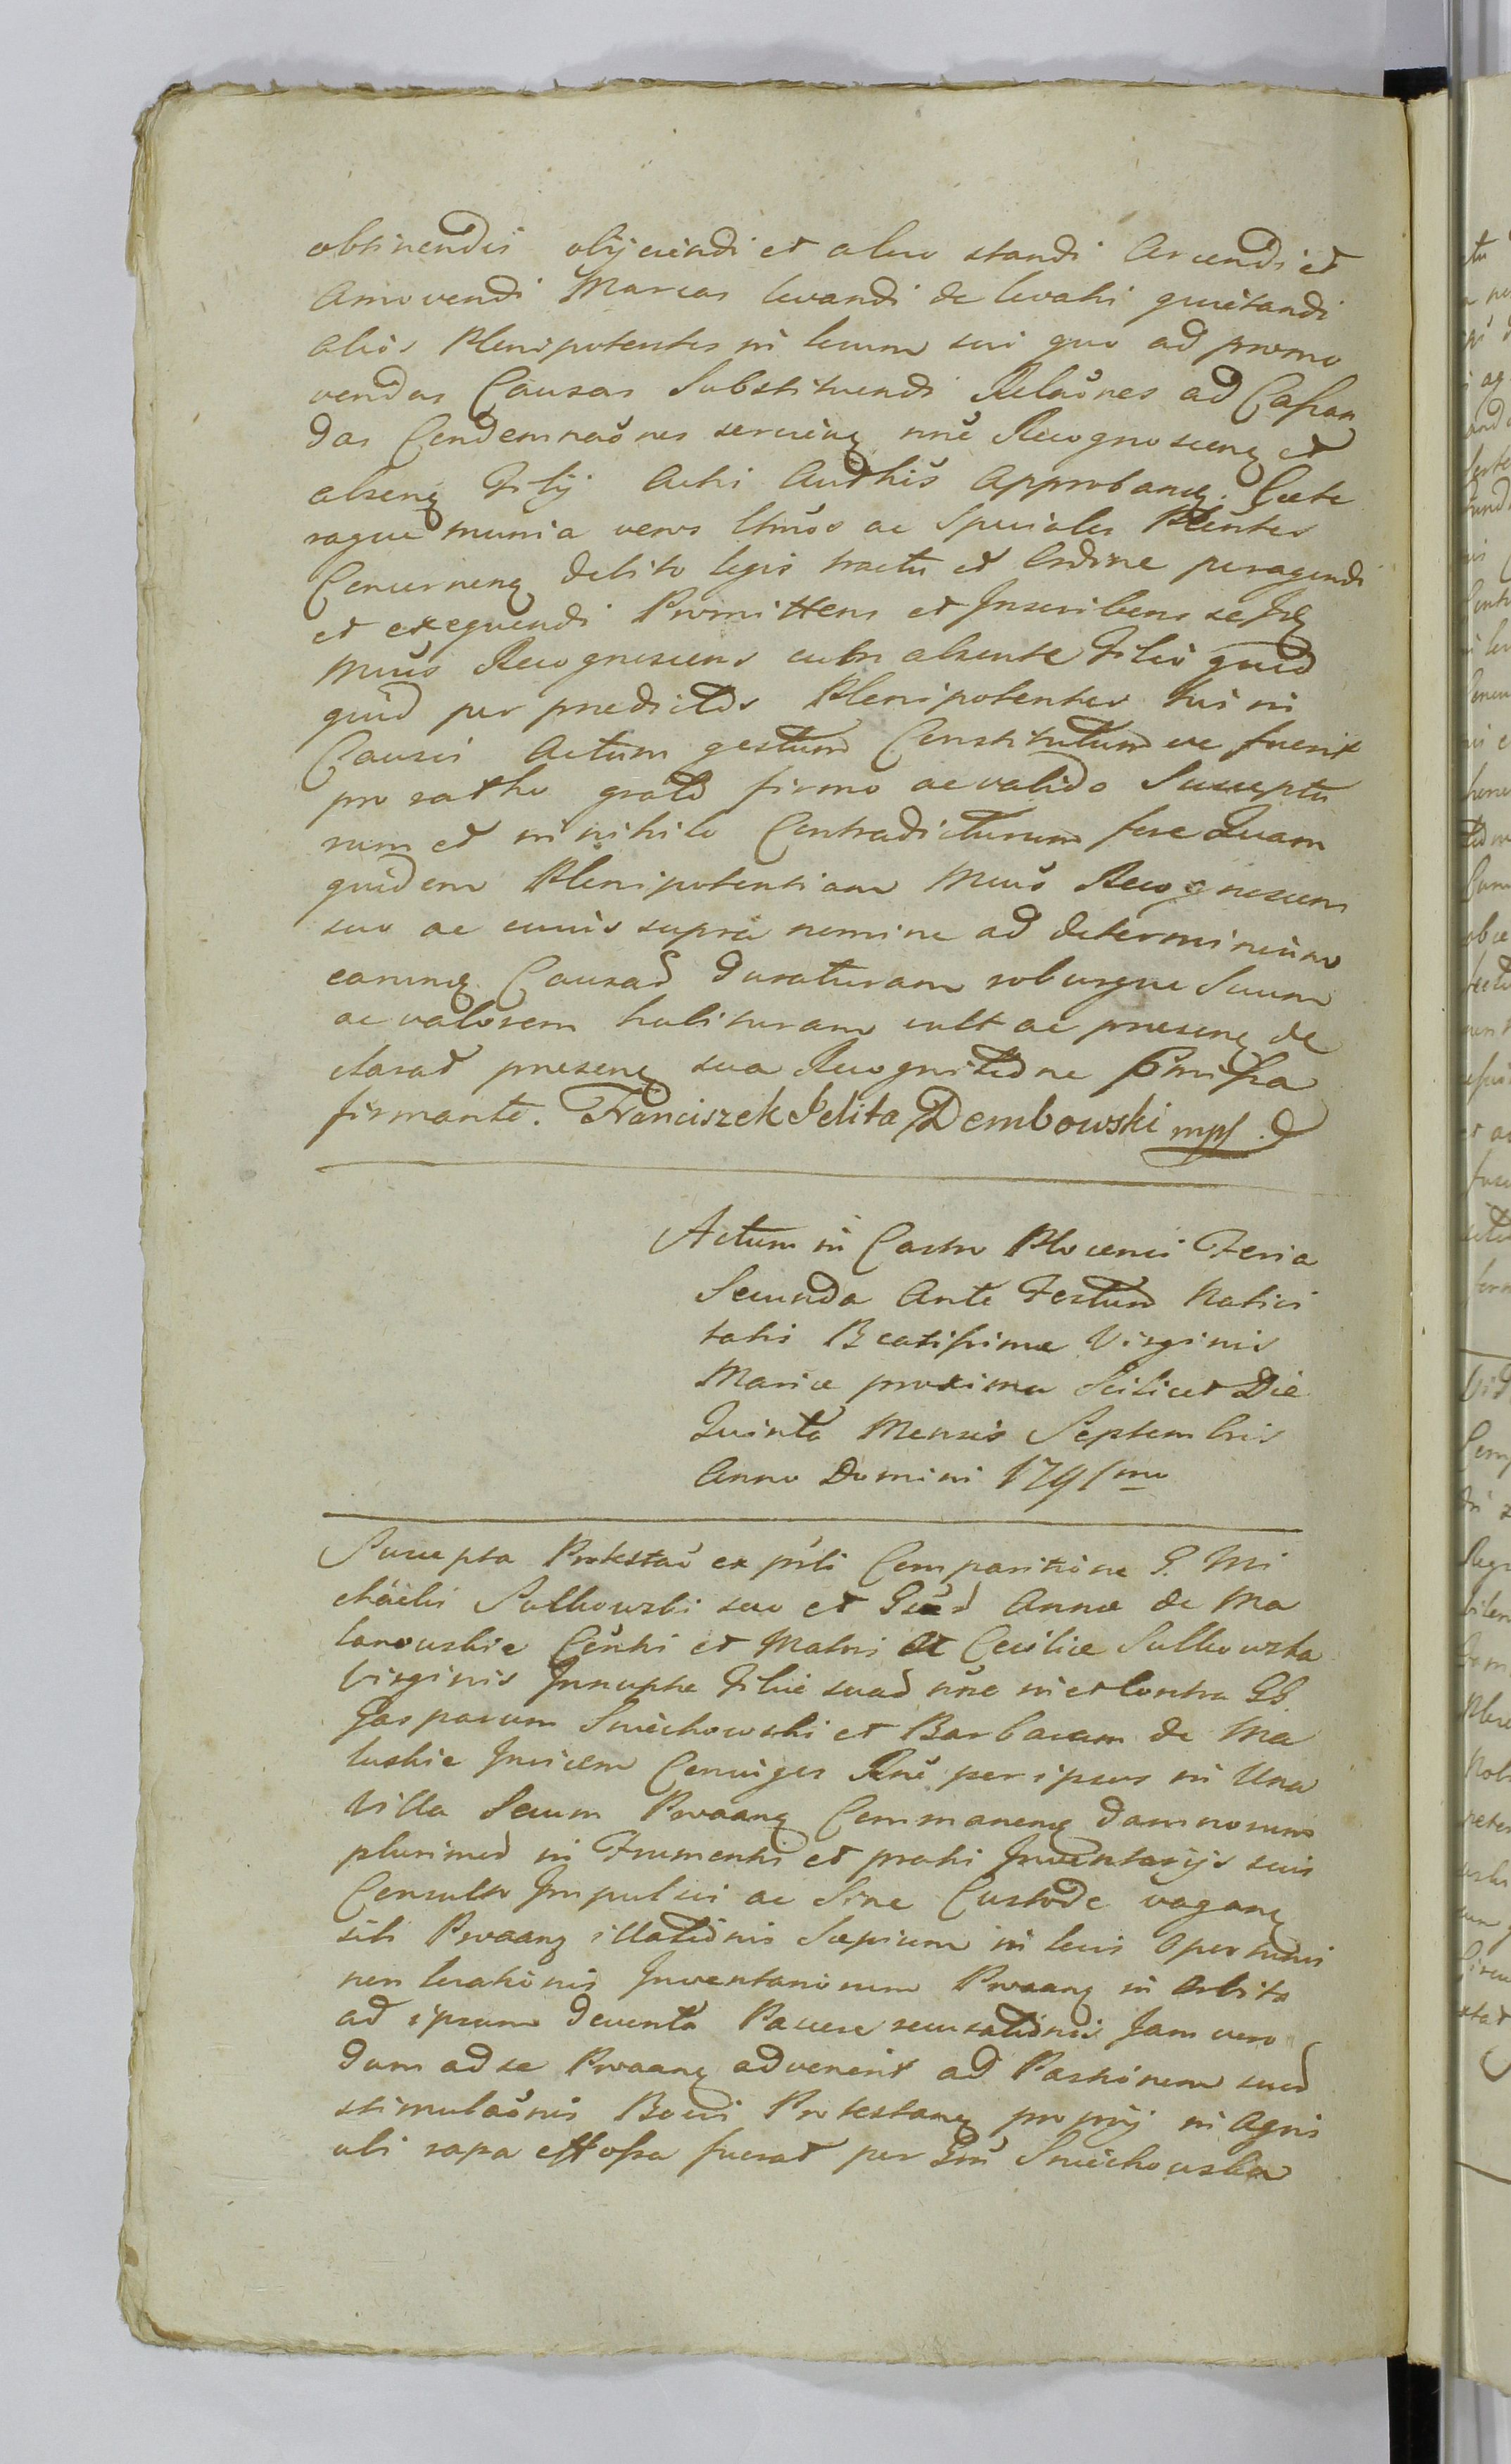 obtinendis obijciendi et alno standi Arcendi et
Amovendi Marcas levandi de levatis quietandi
alios Plenipotentes in locum sui quo ad promo
vendas Causas Substituendi Relaōnes ad Cassan
das Condemnaōnes servienꝫ nnē Recognoscenꝫ et
absenꝫ Filij Actis Authīs Approbanꝫ. Cæte
raque munia veros ltmōs ac Speciales Plēntes
Concernenꝫ debito legis tractu et Ordine peragendi
et exequendi Promittens et Inscribens se
Mcūs Recognoscens cum absente Filio quid
quid per prædictos Plenipotentes suis in
Causis Actum gestum Constitutumve fuerit
pro ratho grato firmo ac valido Susceptu
rum et in nihilo Contradicturum fore Quam
quidem Plenipotentiam Mcūs Recognoscens
suo ac cuius supra nomine ad determinium
earunꝫ Causaꝝ duraturam roburque Suum
ac valorem habituram vult ac præsenꝫ de
clarat præsenꝫ sua Recognitione præmissa
firmante. Franciszek Jelita Dembowski mpf.
Actum in Castro Plocensi Feria
Secunda Ante Festum Nativi
tatis Beatissimæ Virginis
Mariæ proxima Scilicet Die
Quinta Mensis Septembris
Anno Domini 1791mo
Suscepta Protestaō ex pnli Comparitione G. Mi
chäelis Sulkowski suo et Annæ de Ma
lanowskie Conthis et Matris et Ceciliæ Sulkowska
Virginis Innuptæ Filiæ suaꝝ nne in et Contra GG.
Gasparum Sniechowski et Barbaram de Ma
luskie Invicem Conjuges per ipsos in Una
Villa Secum Prvaanꝫ Commanenꝫ damnorum
plurimoꝝ in Frumentis et pratis Inventarijs suis
Consulto Impulsis ac Sine Custode vaganꝫ
sibi Prvaanꝫ illationis Sæpium in locis Opportunis
non locationis Inventariorum Prvaanꝫ in Orbita
ad ipsum devento Pascere recusationis Jam vero
dum ad se Prvaanꝫ advenerit ad Pastionem suoꝝ
stimulaōnis Bovis Protestanꝫ proprij in Agris
ubi rapa effossa fuerat per Gm Sniechowska